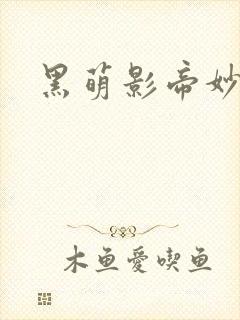 黑萌影帝妙
木鱼愛喫鱼